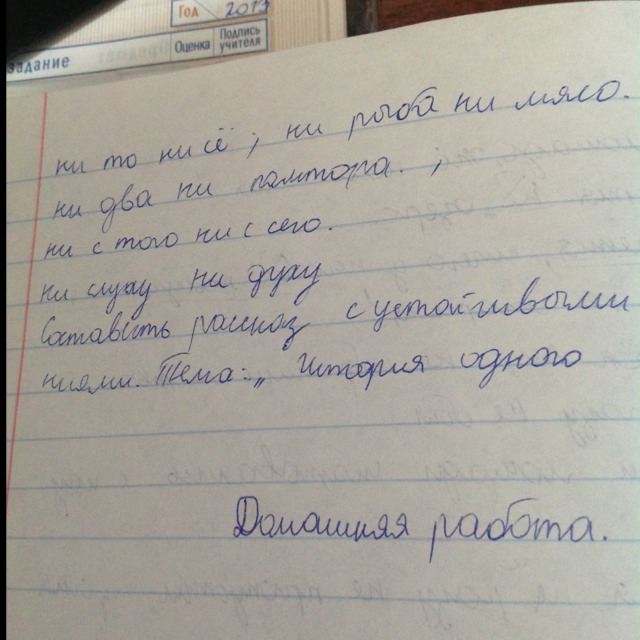 Год 2017
задание Предмет Оценка Подпись учителя
ни то ни сё; ни рыба ни мясо.
ни два ни полтора. ;
ни с того ни с сего.
ни слуху ни духу
Составить рассказ с устойчивыми
ниями. Тема: „ История одного
Домашняя работа.